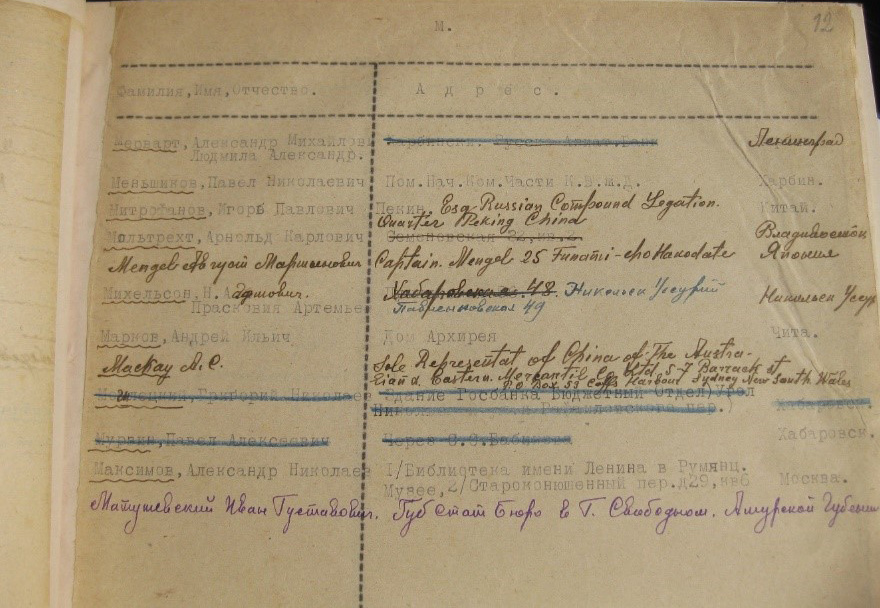 М.
12
Фамилия, Имя, Отчество. Адрес.
Мерварт, Александр Михайлови Ленинград
Людмила Александр.
Меньшиков, Павел Николаевич Пом.Нач.Ком.Части К.В.ж.Д. Харбин.
Митрофанов, Игорь Павлович Пекин. Esq Russian Compound Legation. Китай.
Quarter Peking China
Мольтрехт, Арнольд Карлович Семеновская 22, кв.2 Владивосток
Менгел Август Мартынович Captain. Mengel 25 Funami-cho Hakodate Япония
Михельсон, Н. Хабаровская 48. Никольск Уссурий Никольск Уссур
Прасковия Артемье 49
Марков, Андрей Ильич Дом Архирея Чита.
Маскау А.С. Sole Representat of China of The Austra-
lian d Eastern. Mercantil Co Ltd. 5-7 Barrack st
P.O Box 53 Coffs Harbour Sydney New South Wales
Григорий Николаев Здание Госбанка Бюджетный Отдел) Хабаровск.
пер.)
Мурзин, Павел Алексеевич Через Хабаровск.
Максимов, Александр Николаев 1/Библиотека имени Ленина в Румянц.
Музее, 2/Староконюшенный пер.д29, кв6 Москва.
Матушевский Иван Густавович. Губ Стат Бюро в Г. Свободном. Амурской Губернии